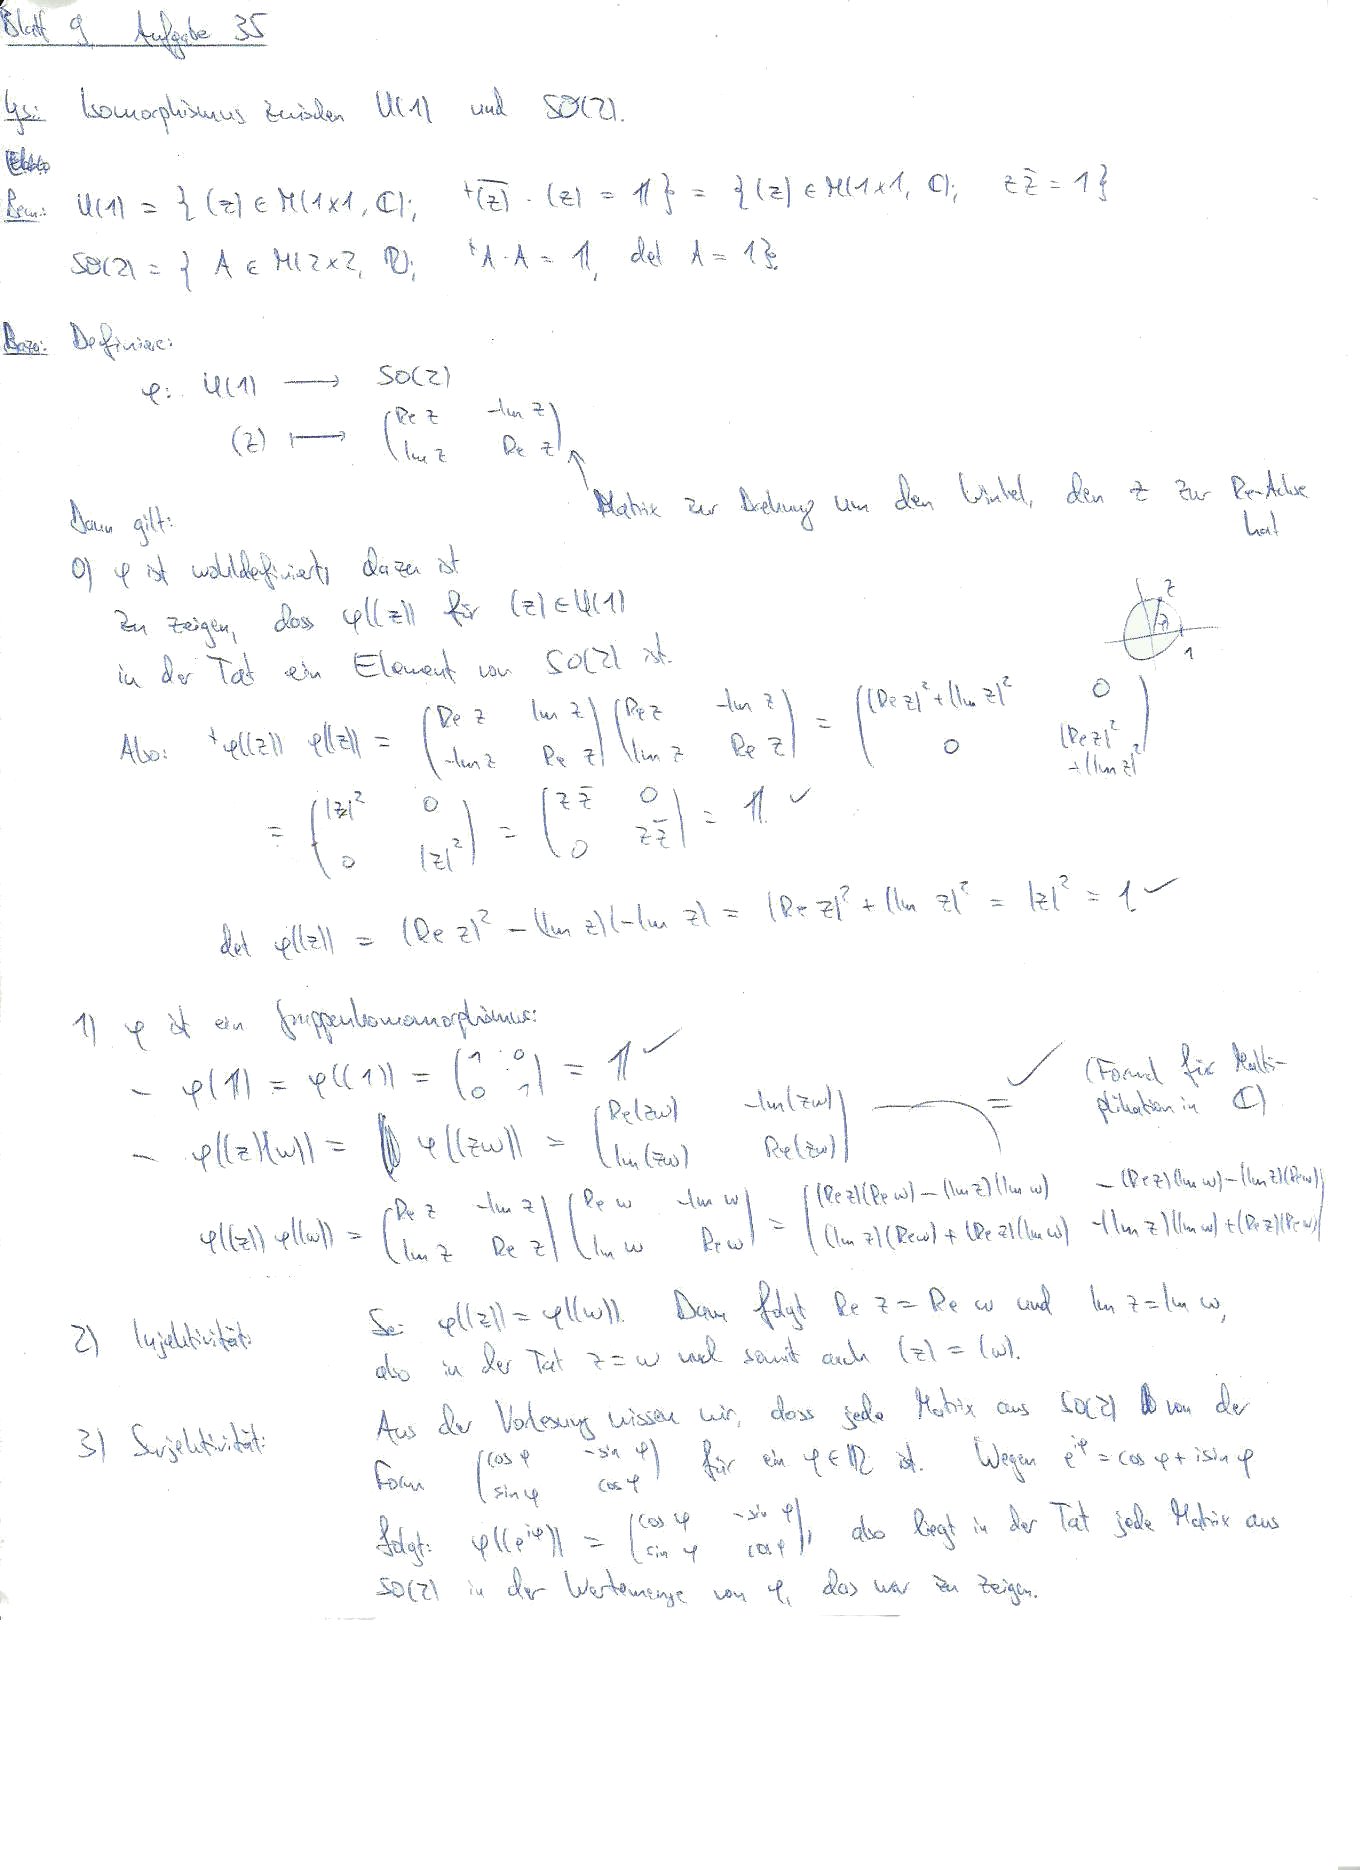 Blatt 9, Aufgabe 35
Ges: Isomorphismus zwischen U(1) und SO(2).
Bem: U(1) = { (z) ∈ M(1×1, ℂ); ᵗ(z̄) · (z) = 𝟙 } = { (z) ∈ M(1×1, ℂ); z z̄ = 1 }
SO(2) = { A ∈ M(2×2, ℝ); ᵗA · A = 𝟙, det A = 1 }.
Definiere:
φ: U(1) ⟶ SO(2)
(z) ⟼ (Re z -Im z; Im z Re z)
Matrix zur Drehung um den Winkel, den z zur Re-Achse hat
Dann gilt:
0) φ ist wohldefiniert, dazu ist
zu zeigen, dass φ((z)) für (z) ∈ U(1)
in der Tat ein Element von SO(2) ist.
z
φ
1
Also: ᵗφ((z)) φ((z)) = (Re z Im z; -Im z Re z) (Re z -Im z; Im z Re z) = ((Re z)² + (Im z)² 0; 0 (Re z)² + (Im z)²)
= (|z|² 0; 0 |z|²) = (z z̄ 0; 0 z z̄) = 𝟙 ✓
det φ((z)) = (Re z)² - (Im z)(-Im z) = (Re z)² + (Im z)² = |z|² = 1 ✓
1) φ ist ein Gruppenhomomorphismus:
- φ(𝟙) = φ((1)) = (1 0; 0 1) = 𝟙 ✓
- φ((z)(w)) = φ((zw)) = (Re(zw) -Im(zw); Im(zw) Re(zw)) = ✓ (Formel für Multiplikation in ℂ)
φ((z)) φ((w)) = (Re z -Im z; Im z Re z) (Re w -Im w; Im w Re w) = ((Re z)(Re w) - (Im z)(Im w) -(Re z)(Im w) - (Im z)(Re w); (Im z)(Re w) + (Re z)(Im w) -(Im z)(Im w) + (Re z)(Re w))
2) Injektivität: Sei φ((z)) = φ((w)). Dann folgt Re z = Re w und Im z = Im w,
also in der Tat z = w und somit auch (z) = (w).
3) Surjektivität: Aus der Vorlesung wissen wir, dass jede Matrix aus SO(2) von der
Form (cos φ -sin φ; sin φ cos φ) für ein φ ∈ ℝ ist. Wegen e^{iφ} = cos φ + i sin φ
folgt: φ((e^{iφ})) = (cos φ -sin φ; sin φ cos φ), also liegt in der Tat jede Matrix aus
SO(2) in der Wertemenge von φ, das war zu zeigen.